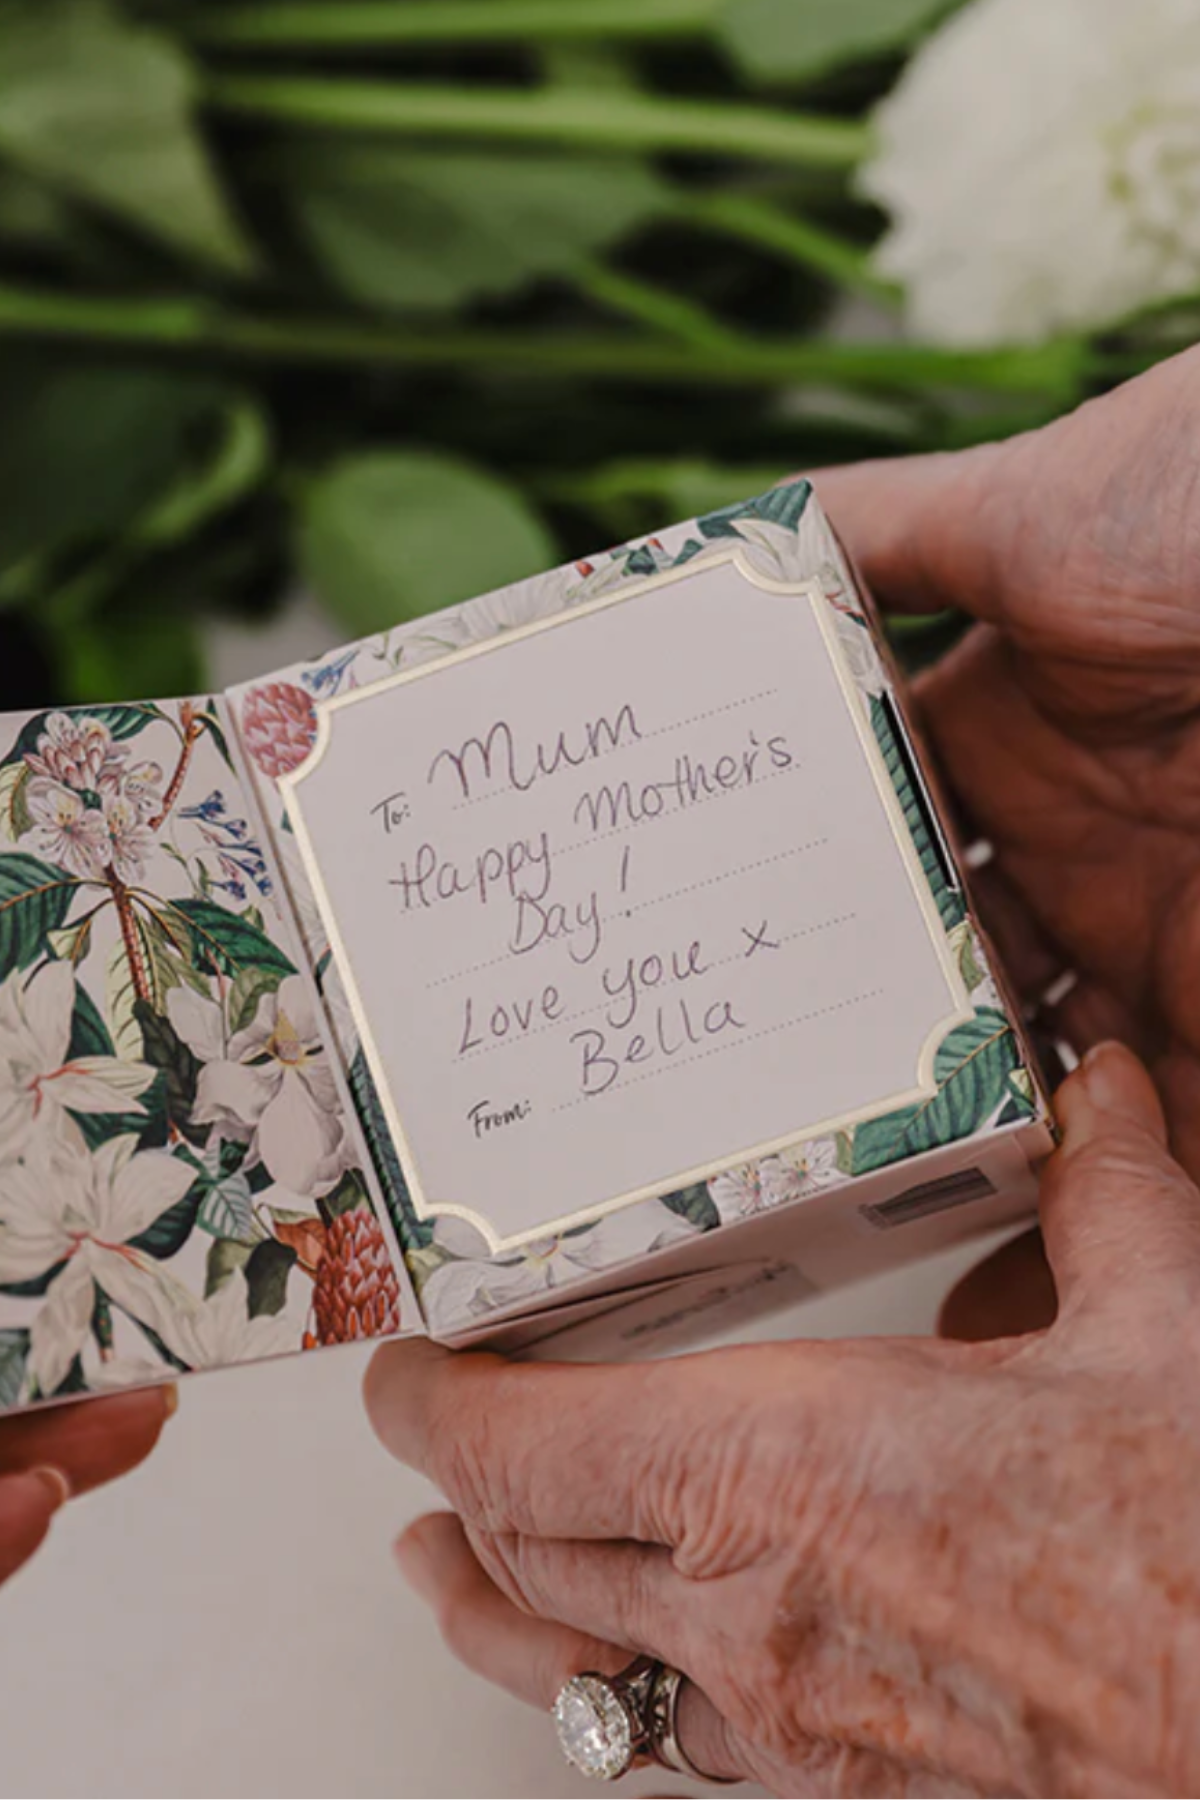 To: Mum
Happy Mother's
Day!
Love you x
Bella
From: